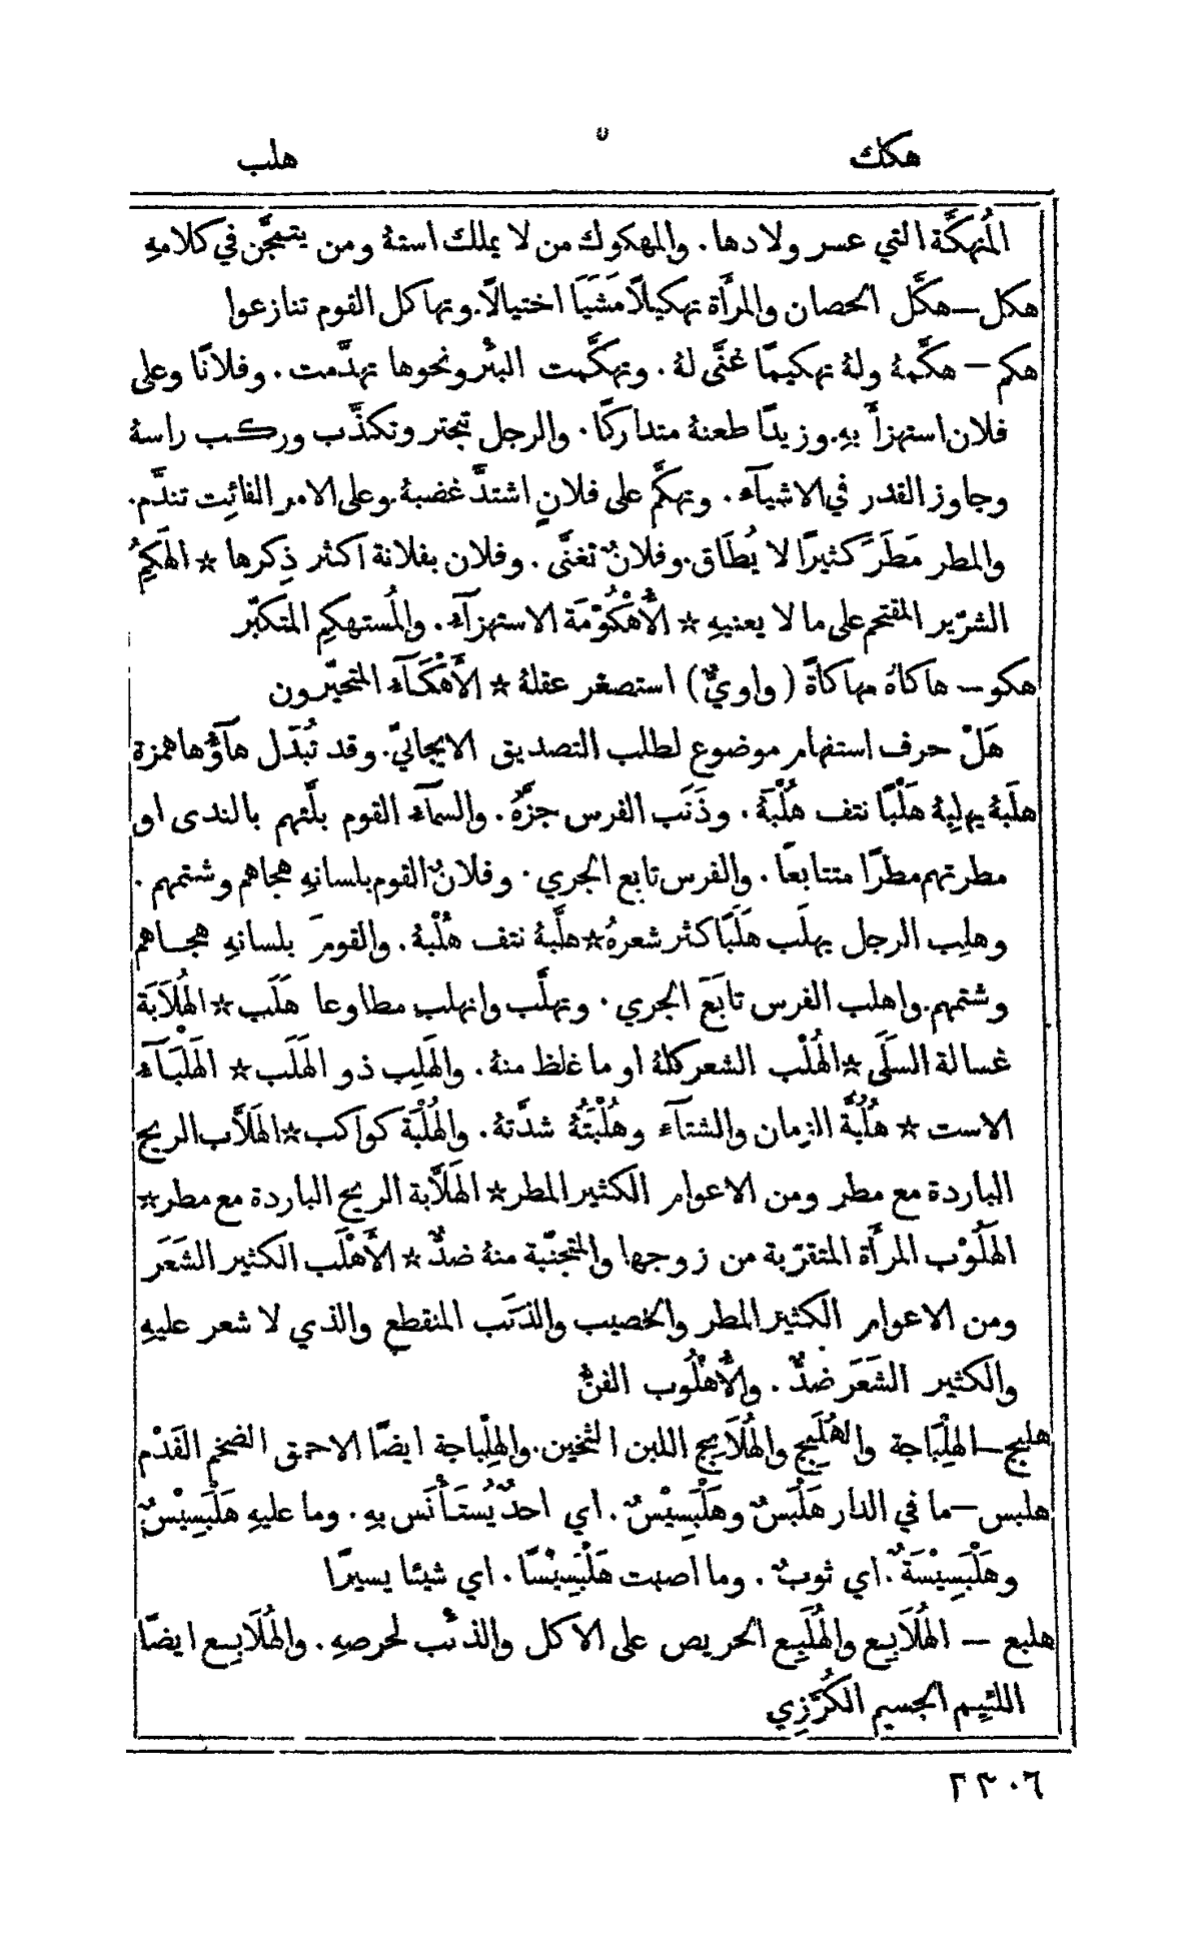 هكك ن هلب
المُنهكَّة التي عسر ولادها. والمهكوك من لا يملك استهُ ومن يتمجَّن في كلامهِ
هكل — هكَّل الحصان والمرأَة تهكيلًا مَشَيَا اختيالًا. وتهاكل القوم تنازعوا
هكم — هكَّمهُ ولهُ تهكيمًا غنَّى لهُ. وتهكَّمت البئر ونحوها تهدَّمت. وفلانًا وعلى
فلان استهزأَ بهِ. وزيدًا طعنهُ متداركًا. والرجل تبختر وتكذَّب وركب راسهُ
وجاوز القدر في الاشيآء. وتهكَّم على فلانٍ اشتدَّ غضبهُ. وعلى الامر الفائِت تندَّم.
والمطر مَطَرَ كثيرًا لا يُطَاق. وفلانٌ تغنَّى. وفلان بفلانة اكثر ذِكرها ☆ الهَكِمُ
الشرّير المقتحم على ما لا يعنيهِ ☆ الأُهْكُوْمَة الاستهزآء. والمُستهكِم المتكبّر
هكو — هاكاهُ مهاكاةً (واويٌّ) استصغر عقلهُ ☆ الأَهْكَآء المتحيّرون
هَلْ حرف استفهام موضوع لطلب التصديق الايجابيّ. وقد تُبدَل هآؤُها همزة
هلَبَهُ يهلِبهُ هَلْبًا نتف هُلْبَهُ. وذَنَب الفرس جزَّهُ. والسمآء القوم بلَّتهم بالندى او
مطرتهم مطرًا متتابعًا. والفرس تابع الجري. وفلانٌ القوم بلسانهِ هجاهم وشتمهم.
وهلِب الرجل يهلَب هَلَبًا كثر شعرهُ ☆ هلَّبهُ نتف هُلْبهُ. والقومَ بلسانهِ هجاهم
وشتمهم. واهلب الفرس تابَعَ الجري. وتهلَّب وانهلب مطاوعا هَلَب ☆ الهُلَابَة
غسالة السَلَى ☆ الهُلْب الشعر كلهُ او ما غلظ منهُ. والهَلِب ذو الهَلَب ☆ الهَلْبَآء
الاست ☆ هُلُبَّة الزمان والشتآء وهُلْبَتُهُ شدَّتهُ. والهُلْبَة كواكب ☆ الهَلَّاب الريح
الباردة مع مطر ومن الاعوام الكثير المطر ☆ الهَلَّابة الريح الباردة مع مطر ☆
الهَلُوْب المرأَة المتقرّبة من زوجها والمتجنّبة منهُ ضدٌّ ☆ الأَهْلَب الكثير الشَعَر
ومن الاعوام الكثير المطر والخصيب والذَنَب المنقطع والذي لا شعر عليهِ
والكثير الشَعَر ضدٌّ. والأُهْلُوب الفنُّ
هلبج — الهِلْبَاجة والهُلَبِج والهُلَابِج اللبن الثخين. والهِلْباجة ايضًا الاحمق الضخم الفَدْم
هلبس — ما في الدار هَلْبَسٌ وهَلْبَسِيْسٌ. اي احدٌ يُسْتَأْنَس بهِ. وما عليهِ هَلْبَسِيْسٌ
وهَلْبَسِيْسَةٌ. اي ثوبٌ. وما اصبت هَلْبَسِيْسًا. اي شيئا يسيرًا
هلبع — الهُلَابِع والهُلَبِع الحريص على الاكل والذئْب لحرصهِ. والهُلَابِع ايضًا
اللئِيم الجسيم الكُرَّزِي
٢٣٠٦